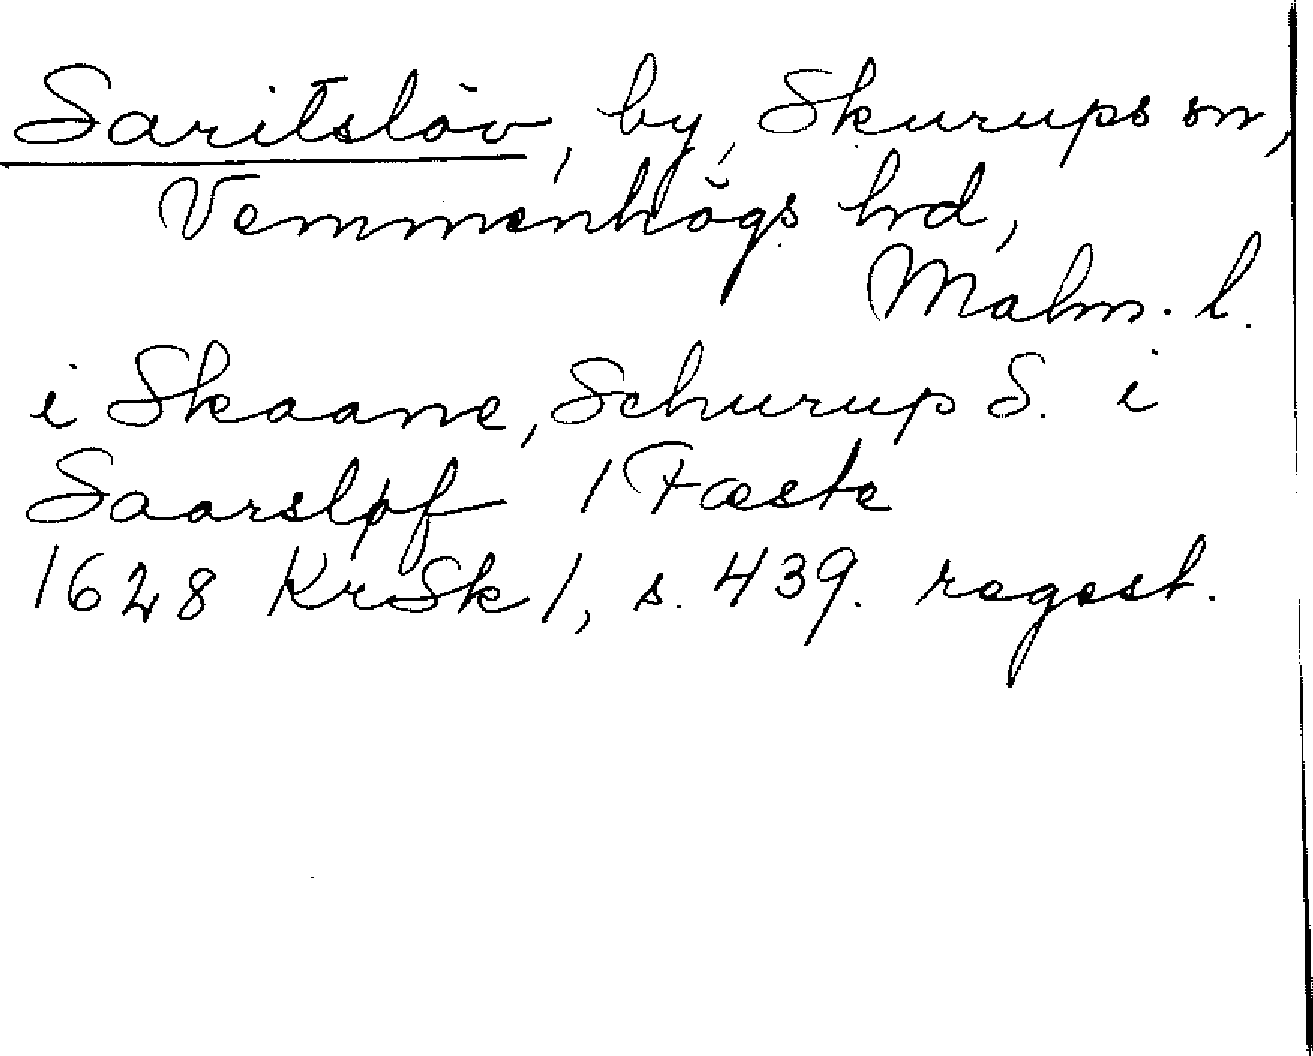 Saritslöv, by, Skurups sn,
Vemmenhögs hrd,
Malm. l.
i Skaane, Schurup S. i
Saarsløf 1 Fæste
1628 KrSk 1, s. 439. regest.